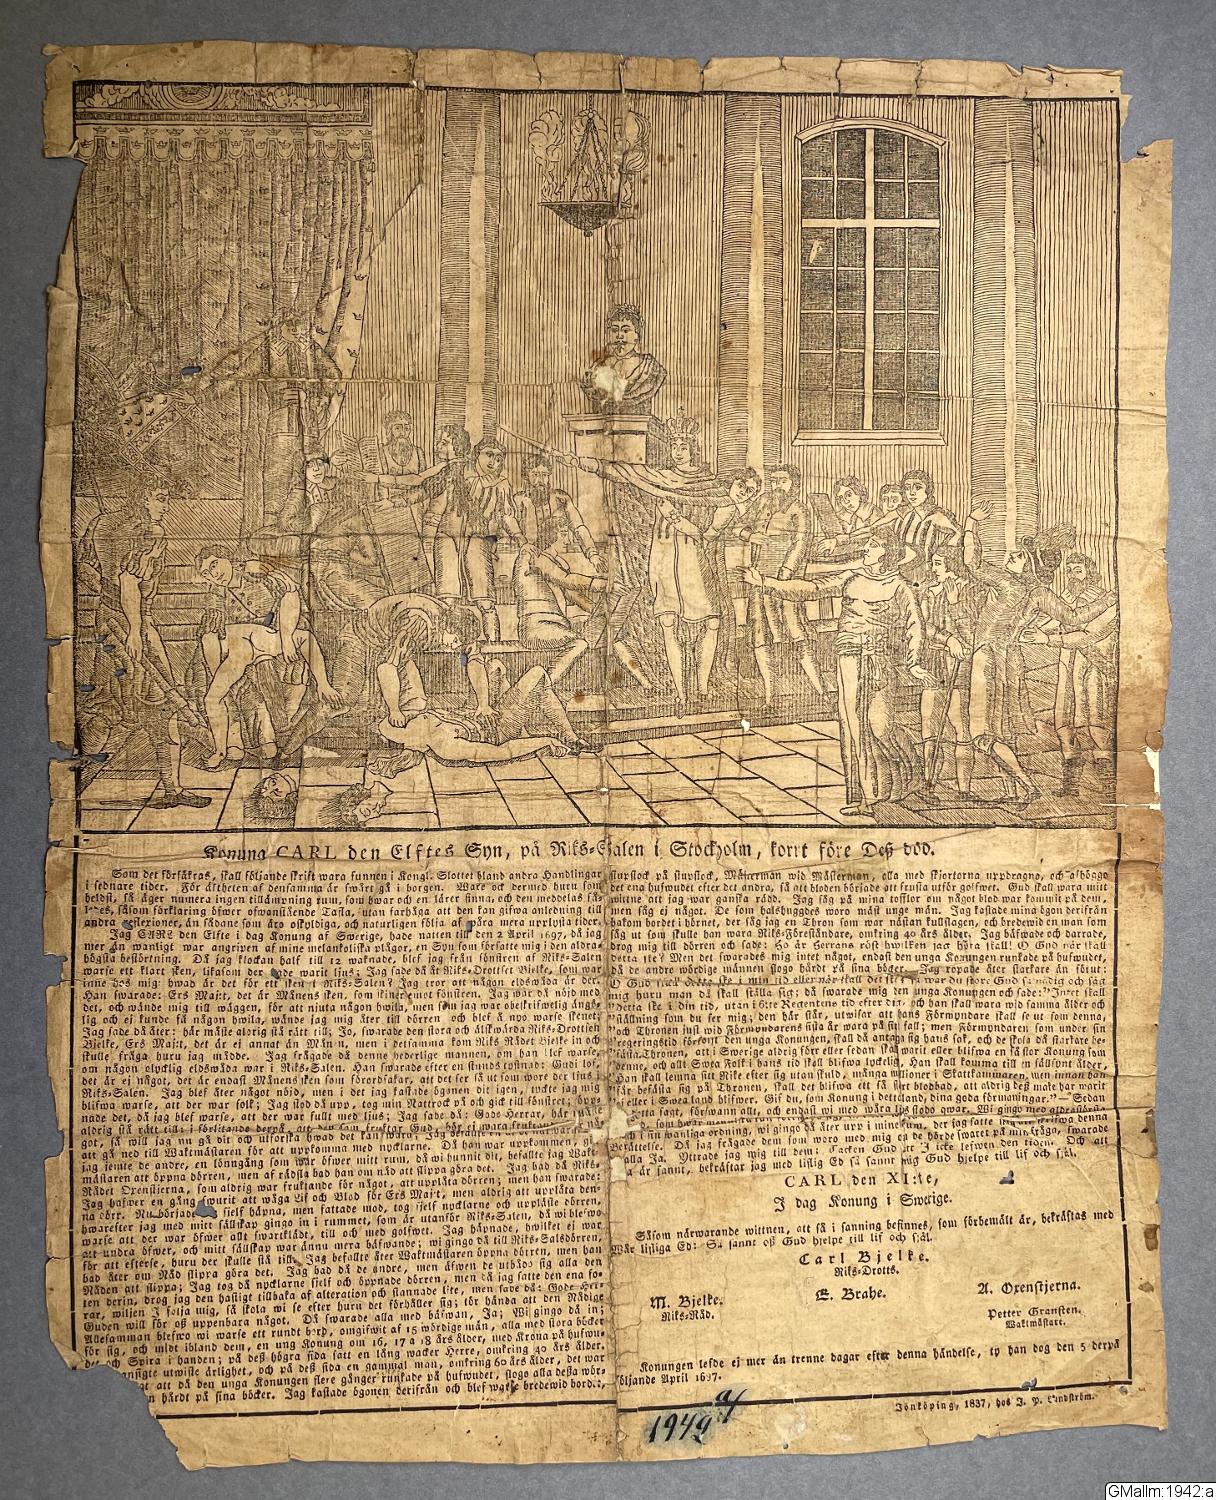 Konung CARL den Elftes Syn, på Riks-Salen i Stockholm, kort före Deß död.
Som det försäkras, skall följande skrift wara funnen i Kongl. Slottet bland andra Handlingar
i sednare tider. För äktheten af densamma är swårt gå i borgen. Ware ock dermed huru som
heldst, så äger numera ingen tillämpning rum, som hwar och en lärer finna, och den meddelas
såsom förklaring öfwer ofwanstående Tafla, utan farhåga att den kan gifwa anledning till
andra reflexioner, än sådane som äro oskyldiga, och naturligen följa af wåra mera upplysta tider.
Jag CARL den Elfte i dag Konung af Swerige, hade natten till den 2 April 1697, då jag
mer än wanligt war angripen af mine melankoliska plågor, en Syn som försatte mig i den aldra-
högsta bestörtning. Då jag klockan half till 12 waknade, blef jag från fönstren af Riks-Salen
warse ett klart sken, likasom der hade warit ljus; Jag sade då åt Riks-Drottset Bjelke, som war
inne hos mig: hwad är det för ett sken i Riks-Salen? Jag tror att någon eldswåda är der.
Han swarade: Ers Maj:t, det är Månens sken, som skiner emot fönstren. Jag war då nöjd med
det, och wände mig till wäggen, för att njuta någon hwila, men som jag war obeskrifweligt ängs-
lig och ej kunde få någon hwila, wände jag mig åter till dörren och blef å nyo warse skenet;
Jag sade då åter: här måste aldrig stå rätt till; Jo, swarade den stora och älskwärda Riks-Drottsen
Bjelke, Ers Maj:t, det är ej annat än Månen, men i detsamma kom Riks Rådet Bjelke in och
skulle fråga huru jag mådde. Jag frågade då denne hederlige mannen, om han blef warse,
om någon olycklig eldswåda war i Riks-Salen. Han swarade efter en stunds tystnad: Gudi lof,
det är ej något, det är endast Månens sken som förordsakar, att det ser ut som wore der ljus i
Riks-Salen. Jag blef åter något nöjd, men i det jag kastade ögonen dit igen, tyckte jag mig
blifwa warse, att der war folk; Jag stod då upp, tog min Nattrock på och gick till fönstret, öpp-
nade det, då jag blef warse, att der war fullt med ljus; Jag sade då: Gode Herrar, här måste
aldrig stå rätt till; i förlitande derpå, att den som fruktar Gud, bör ej wara
got, så will jag nu gå dit och utforska hwad det kan wara;
att gå ned till Waktmästaren för att uppkomma med nycklarne. Då han war uppkommen,
jag jemte de andre, en lönngång som war öfwer mitt rum, då wi hunnit dit, befallte jag Wakt-
mästaren att öppna dörren, men af rädsla bad han om nåd att slippa göra det. Jag bad då Riks-
Rådet Oxenstjerna, som aldrig war fruktande för något, att upplåta dörren; men han swarade:
Jag hafwer en gång swurit att wåga Lif och Blod för Ers Maj:t, men aldrig att upplåta den-
na dörr. Nu började sjelf häpna, men fattade mod, tog sjelf nycklarne och uppläste dörren,
hwarefter jag med mitt sällskap gingo in i rummet, som är utanför Riks-Salen, då wi blefwo
warse att der war öfwer allt swartklädt, till och med golfwet. Jag häpnade, hwilket ej war
att undra öfwer, och mitt sällskap war ännu mera bäfwande; wi gingo då till Riks-Salsdörren,
för att efterse, huru der skulle stå till. Jag befallte åter Waktmästaren öppna dörren, men han
bad åter om Nåd slippa göra det. Jag bad då de andre, men äfwen de utbådo sig alla den
Nåden att slippa; Jag tog då nycklarne sjelf och öppnade dörren, men då jag satte den ena fo-
ten derin, drog jag den hastigt tillbaka af alteration och stannade lite, men sade då: Gode Her-
rar, wiljen J följa mig, så skola wi se efter huru det förhåller sig; tör hända att den Nådige
Guden will för oß uppenbara något. Då swarade alla med bäfwan, Ja; Wi gingo då in;
Allesamman blefwo wi warse ett rundt bord, omgifwit af 15 wördige män, alla med stora böcker
för sig, och midt ibland dem, en ung Konung om 16, 17 a 18 års ålder, med Krona på hufwu-
det och Spira i handen; på deß högra sida satt en lång wacker Herre, omkring 40 års ålder,
ansigte utwiste ärlighet, och på deß sida en gammal man, omkring 60 års ålder, det war
att då den unga Konungen flere gånger runkade på hufwudet, slogo alla desta wör-
hårdt på sina böcker. Jag kastade ögonen derifrån och blef warse bredewid bordet,
stupstock på stupstock, Mästerman wid Mästerman, alla med skjortorna uppdragna, och afhöggo
det ena hufwudet efter det andra, så att bloden började att frusta utför golfwet. Gud skall wara mitt
wittne att jag war ganska rädd. Jag såg på mina tofflor om något blod war kommit på dem,
men såg ej något. De som halshuggdes woro mäst unge män. Jag kastade mina ögon derifrån
bakom bordet i hörnet, der såg jag en Thron som war nästan kullslagen, och bredewid en man som
såg ut som skulle han wara Riks-Föreståndare, omkring 40 års ålder. Jag bäfwade och darrade,
drog mig till dörren och sade: Ho är Herrans röst hwilken jag höra skall! O Gud när skall
detta ske? Men det swarades mig intet något, endast den unga Konungen runkade på hufwudet,
då de andre wördige männen slogo hårdt på sina böcker. Jag ropade åter starkare än förut:
O Gud
mig huru man då skall ställa sig; då swarade mig den unga Konungen och sade: "Intet skall
detta ske i din tid, utan i 6:te Regentens tid efter dig, och han skall wara wid samma ålder och
ställning som du ser mig; den här står, utwisar att hans Förmyndare skall se ut som denna,
och Thronen just wid Förmyndarens sista år wara på sitt fall; men Förmyndaren som under sin
regeringstid försökt den unga Konungen, skall då antaga sig hans sak, och de skola då starkare be-
fästa Thronen, att i Swerige aldrig förr eller sedan skall warit eller blifwa en så stor Konung som
denne, och allt Swea Folk i hans tid skall blifwa lyckelig. Han skall komma till en sällsynt ålder,
Han skall lemna sitt Rike efter sig utan skuld, många millioner i Skattkammaren, men innan han
får befästa sig på Thronen, skall det blifwa ett så stort blodbad, att aldrig deß make har warit
eller i Swea land blifwer. Gif du, som Konung i detta land, dina goda förmaningar." — Sedan
detta sagt, förswann allt, och endast wi med wåra ljus stodo qwar. Wi gingo med aldrastörsta
i sin wanliga ordning, wi gingo då åter upp i mine rum, der jag satte mig att skrifwa denna
Berättelse. Då jag frågade dem som woro med mig om de hörde swaret på min fråga, swarade
alla Ja. Och att
a är sannt, bekräftar jag med listig Ed så sannt mig Gud hjelpe till lif och själ.
CARL den XI:te,
I dag Konung i Swerige.
Såsom närwarande wittnen, att så i sanning befinnes, som förbemält är, bekräftas med
Wår lifliga Ed: Så sannt oß Gud hjelpe till lif och själ.
Carl Bjelke.
Riks-Drotts.
M. Bjelke. E. Brahe. A. Oxenstjerna.
Riks-Råd.
Petter Gransten.
Waktmästare.
Konungen lefde ej mer än trenne dagar efter denna händelse, ty han dog den 5 derpå
följande April 1697.
Jönköping, 1837, hos J. P. Lundström.
1942 a/
GMallm:1942:a